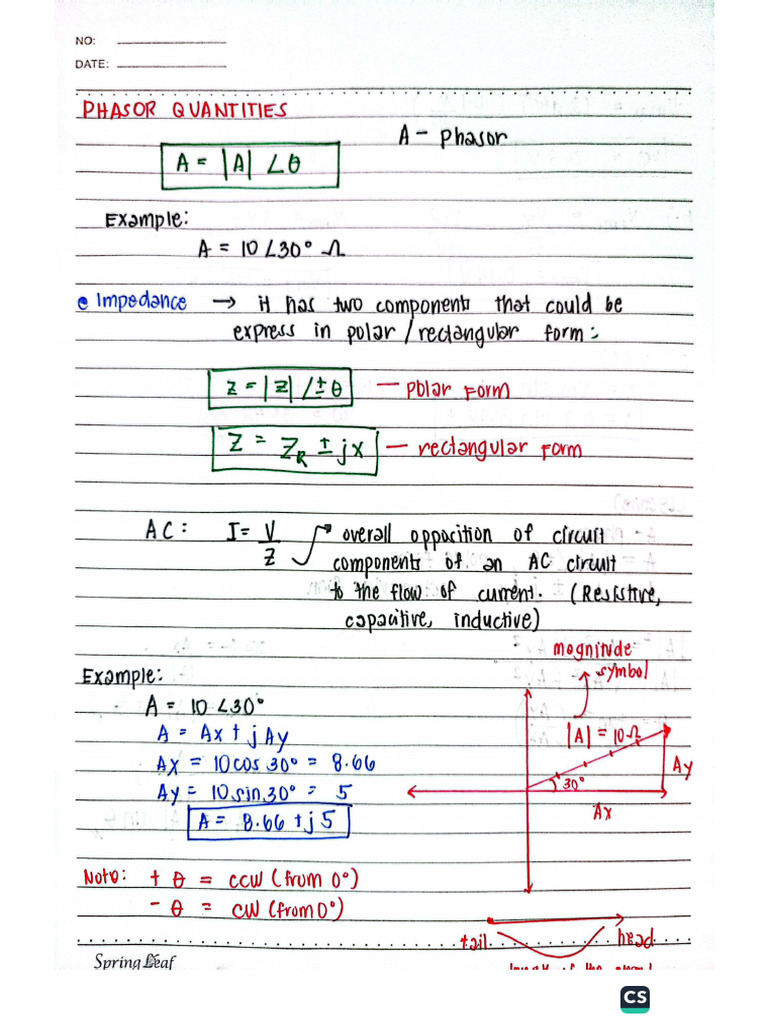 NO:
DATE:
PHASOR QUANTITIES
A - phasor
A = |A| ∠θ
Example:
A = 10∠30° Ω
Impedance → it has two components that could be
express in polar / rectangular form:
Z = |Z| ∠±θ — polar form
Z = Z_R ± jX — rectangular form
AC: I = V/Z → overall opposition of circuit
components of an AC circuit
to the flow of current. (Resistive,
capacitive, inductive)
magnitude
symbol
Example:
A = 10∠30°
A = Ax + jAy
Ax = 10cos30° = 8.66
Ay = 10sin30° = 5
A = 8.66 + j5
|A| = 10Ω
Ay
30°
Ax
Note: + θ = CCW (from 0°)
- θ = CW (from 0°)
tail
head
Spring Leaf
CS